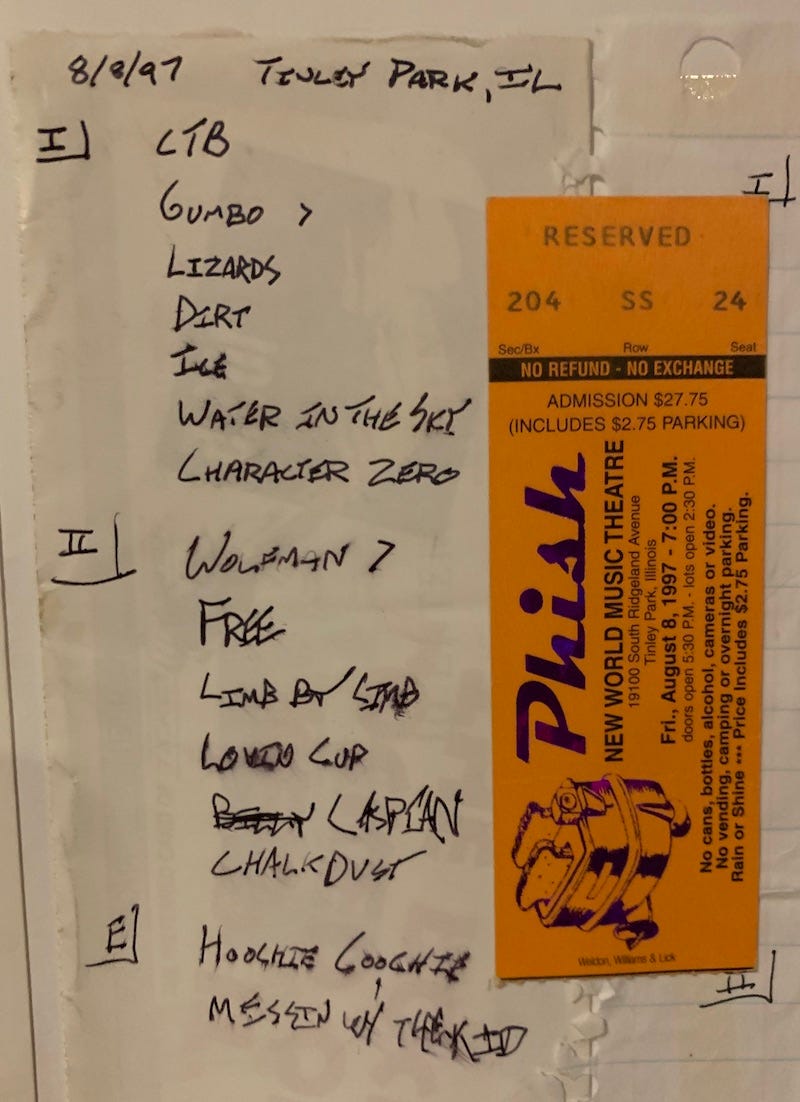 8/8/97 TINLEY PARK, IL
I CTB
GUMBO >
LIZARDS
DIRT
ICE
WATER IN THE SKY
CHARACTER ZERO
II WOLFMAN >
FREE
LIMB BY LIMB
LOVIN CUP
CASPIAN
CHALKDUST
E HOOCHIE COOCHIE
MESSIN W/ THE KID
I
RESERVED
204 SS 24
Sec/Bx Row Seat
NO REFUND - NO EXCHANGE
ADMISSION $27.75
(INCLUDES $2.75 PARKING)
Phish
NEW WORLD MUSIC THEATRE
19100 South Ridgeland Avenue
Tinley Park, Illinois
Fri., August 8, 1997 - 7:00 P.M.
doors open 5:30 P.M. - lots open 2:30 P.M.
No cans, bottles, alcohol, cameras or video.
No vending, camping or overnight parking.
Rain or Shine *** Price Includes $2.75 Parking.
Weldon, Williams & Lick
II